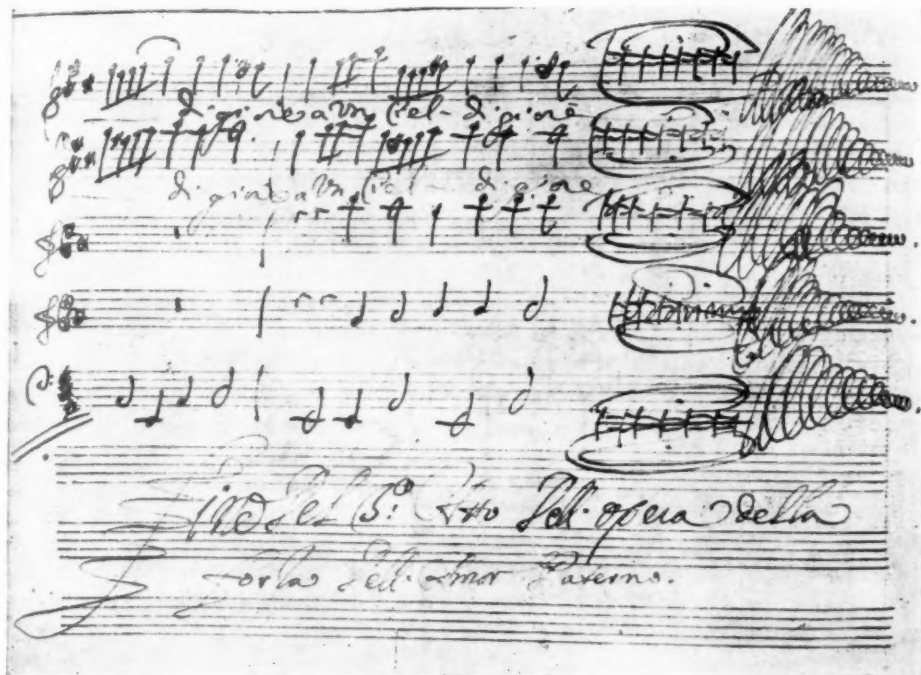 di gioie a Vn Ciel - di gioie
di gioie a Vn Ciel - di gioie
Fine Del 3.º Atto Dell' opera della
forza Dell' Amor Paterno.